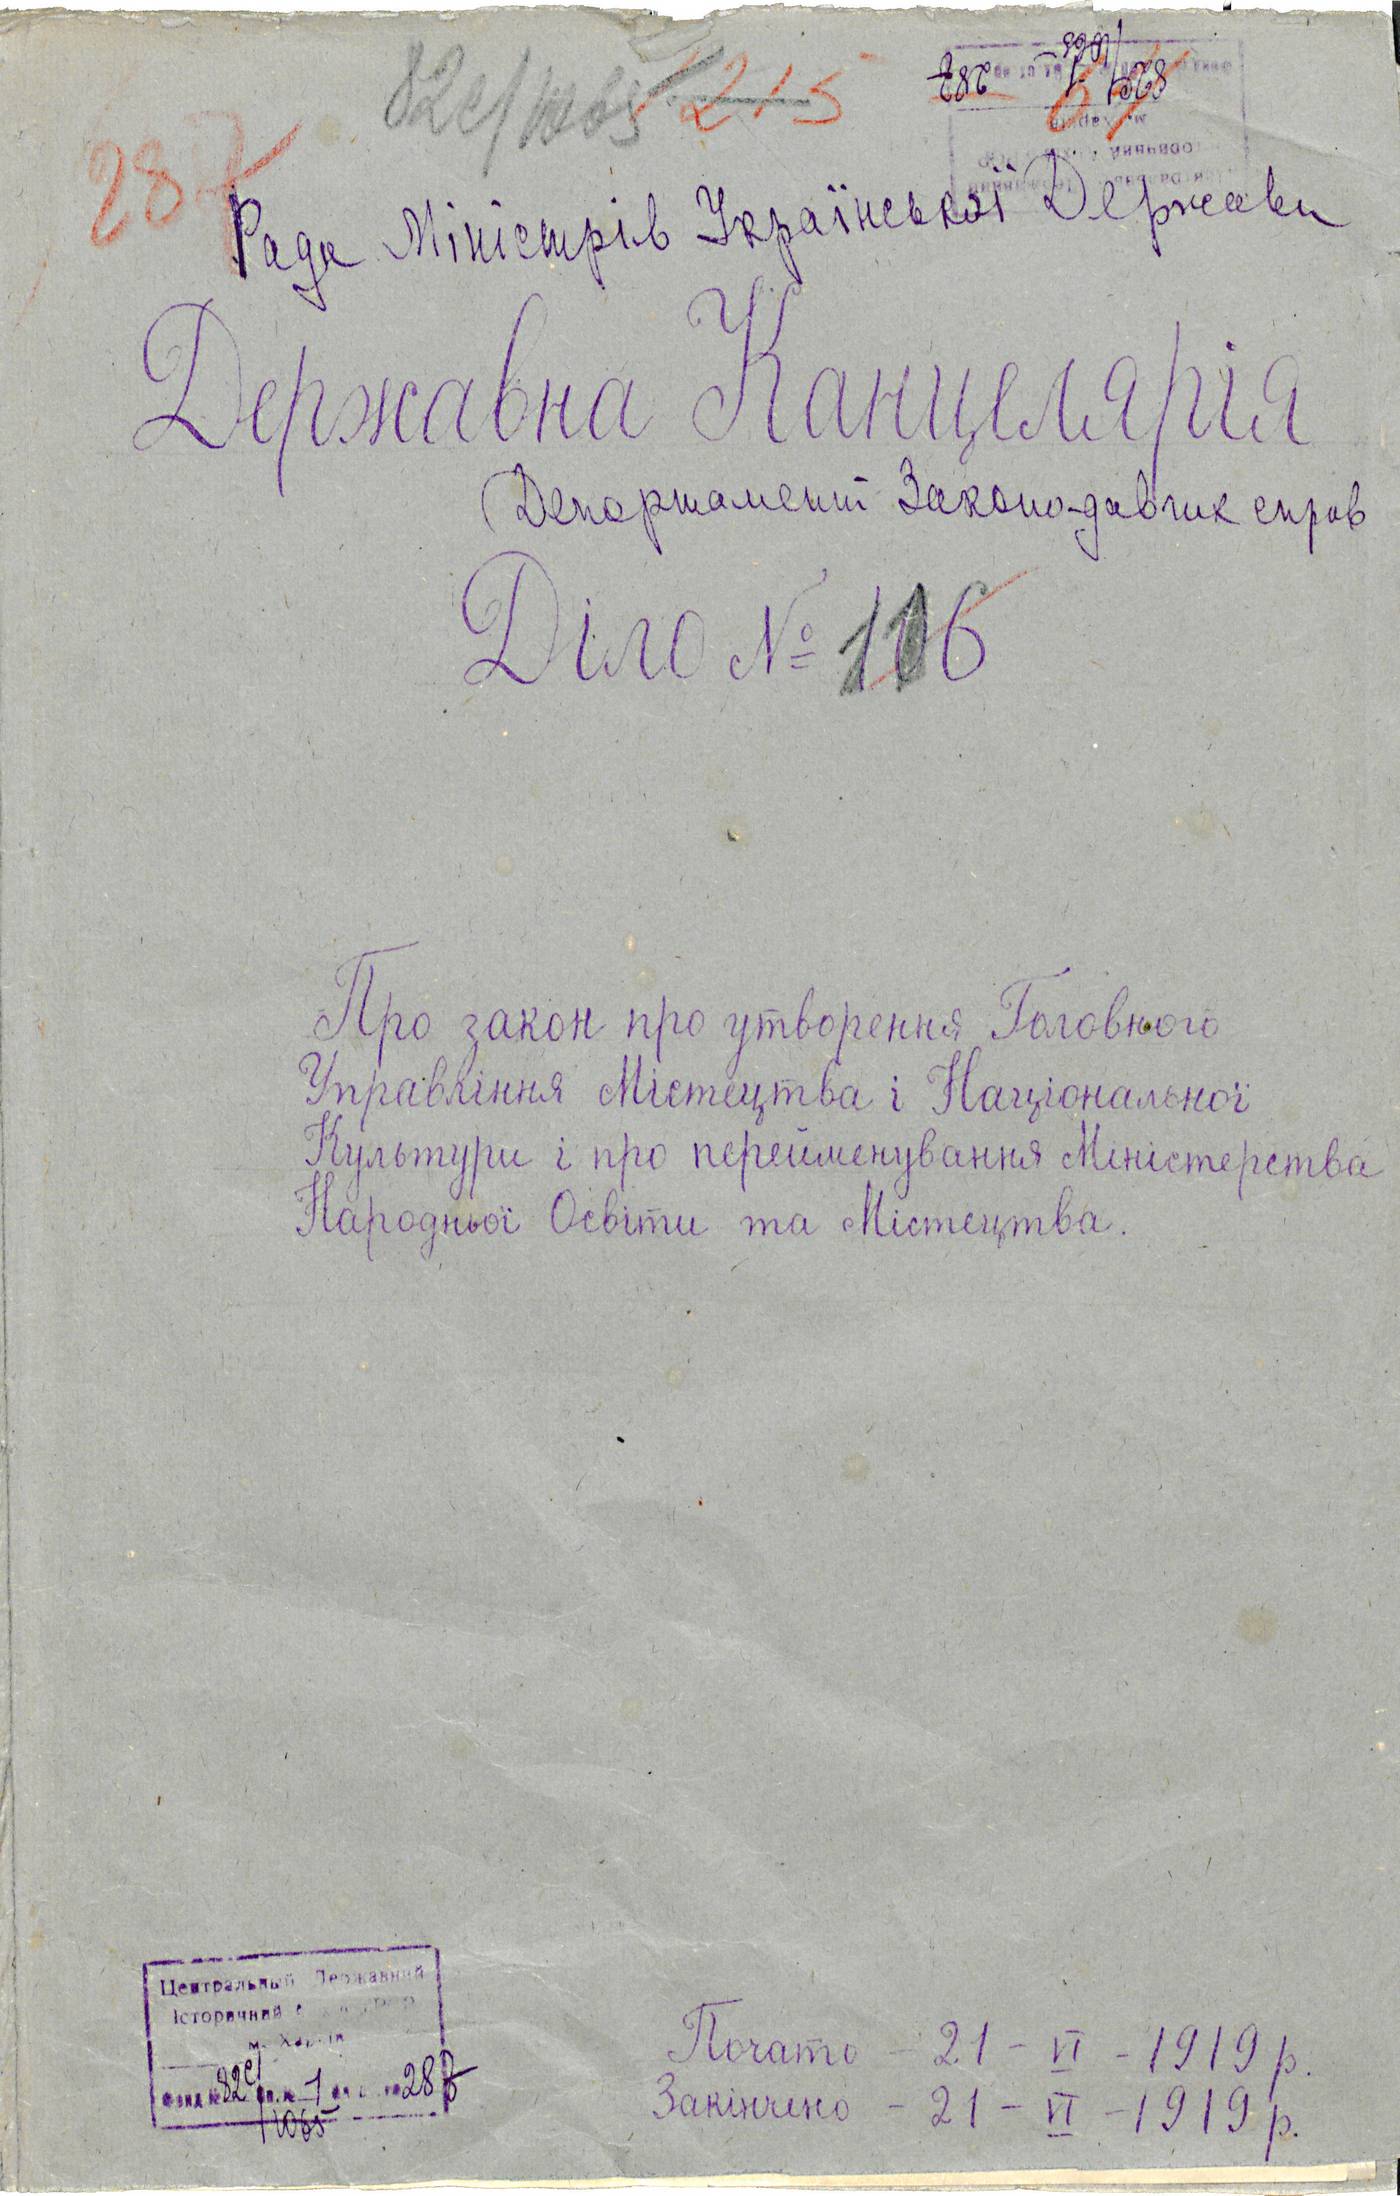 82с/1065 215
287
Рада Міністрів Української Держави
Державна Канцелярія
Департамент Законо-давчих справ
Діло № 116
Про закон про утворення Головного
Управління Містецтва і Національної
Культури і про перейменування Міністерства
Народньої Освіти та Містецтва.
Центральный Державний
Історичний
м. Харків
Фонд № 82с/1065 оп. № 1 287
Почато - 21 - VI - 1919 р.
Закінчено - 21 - VI - 1919 р.